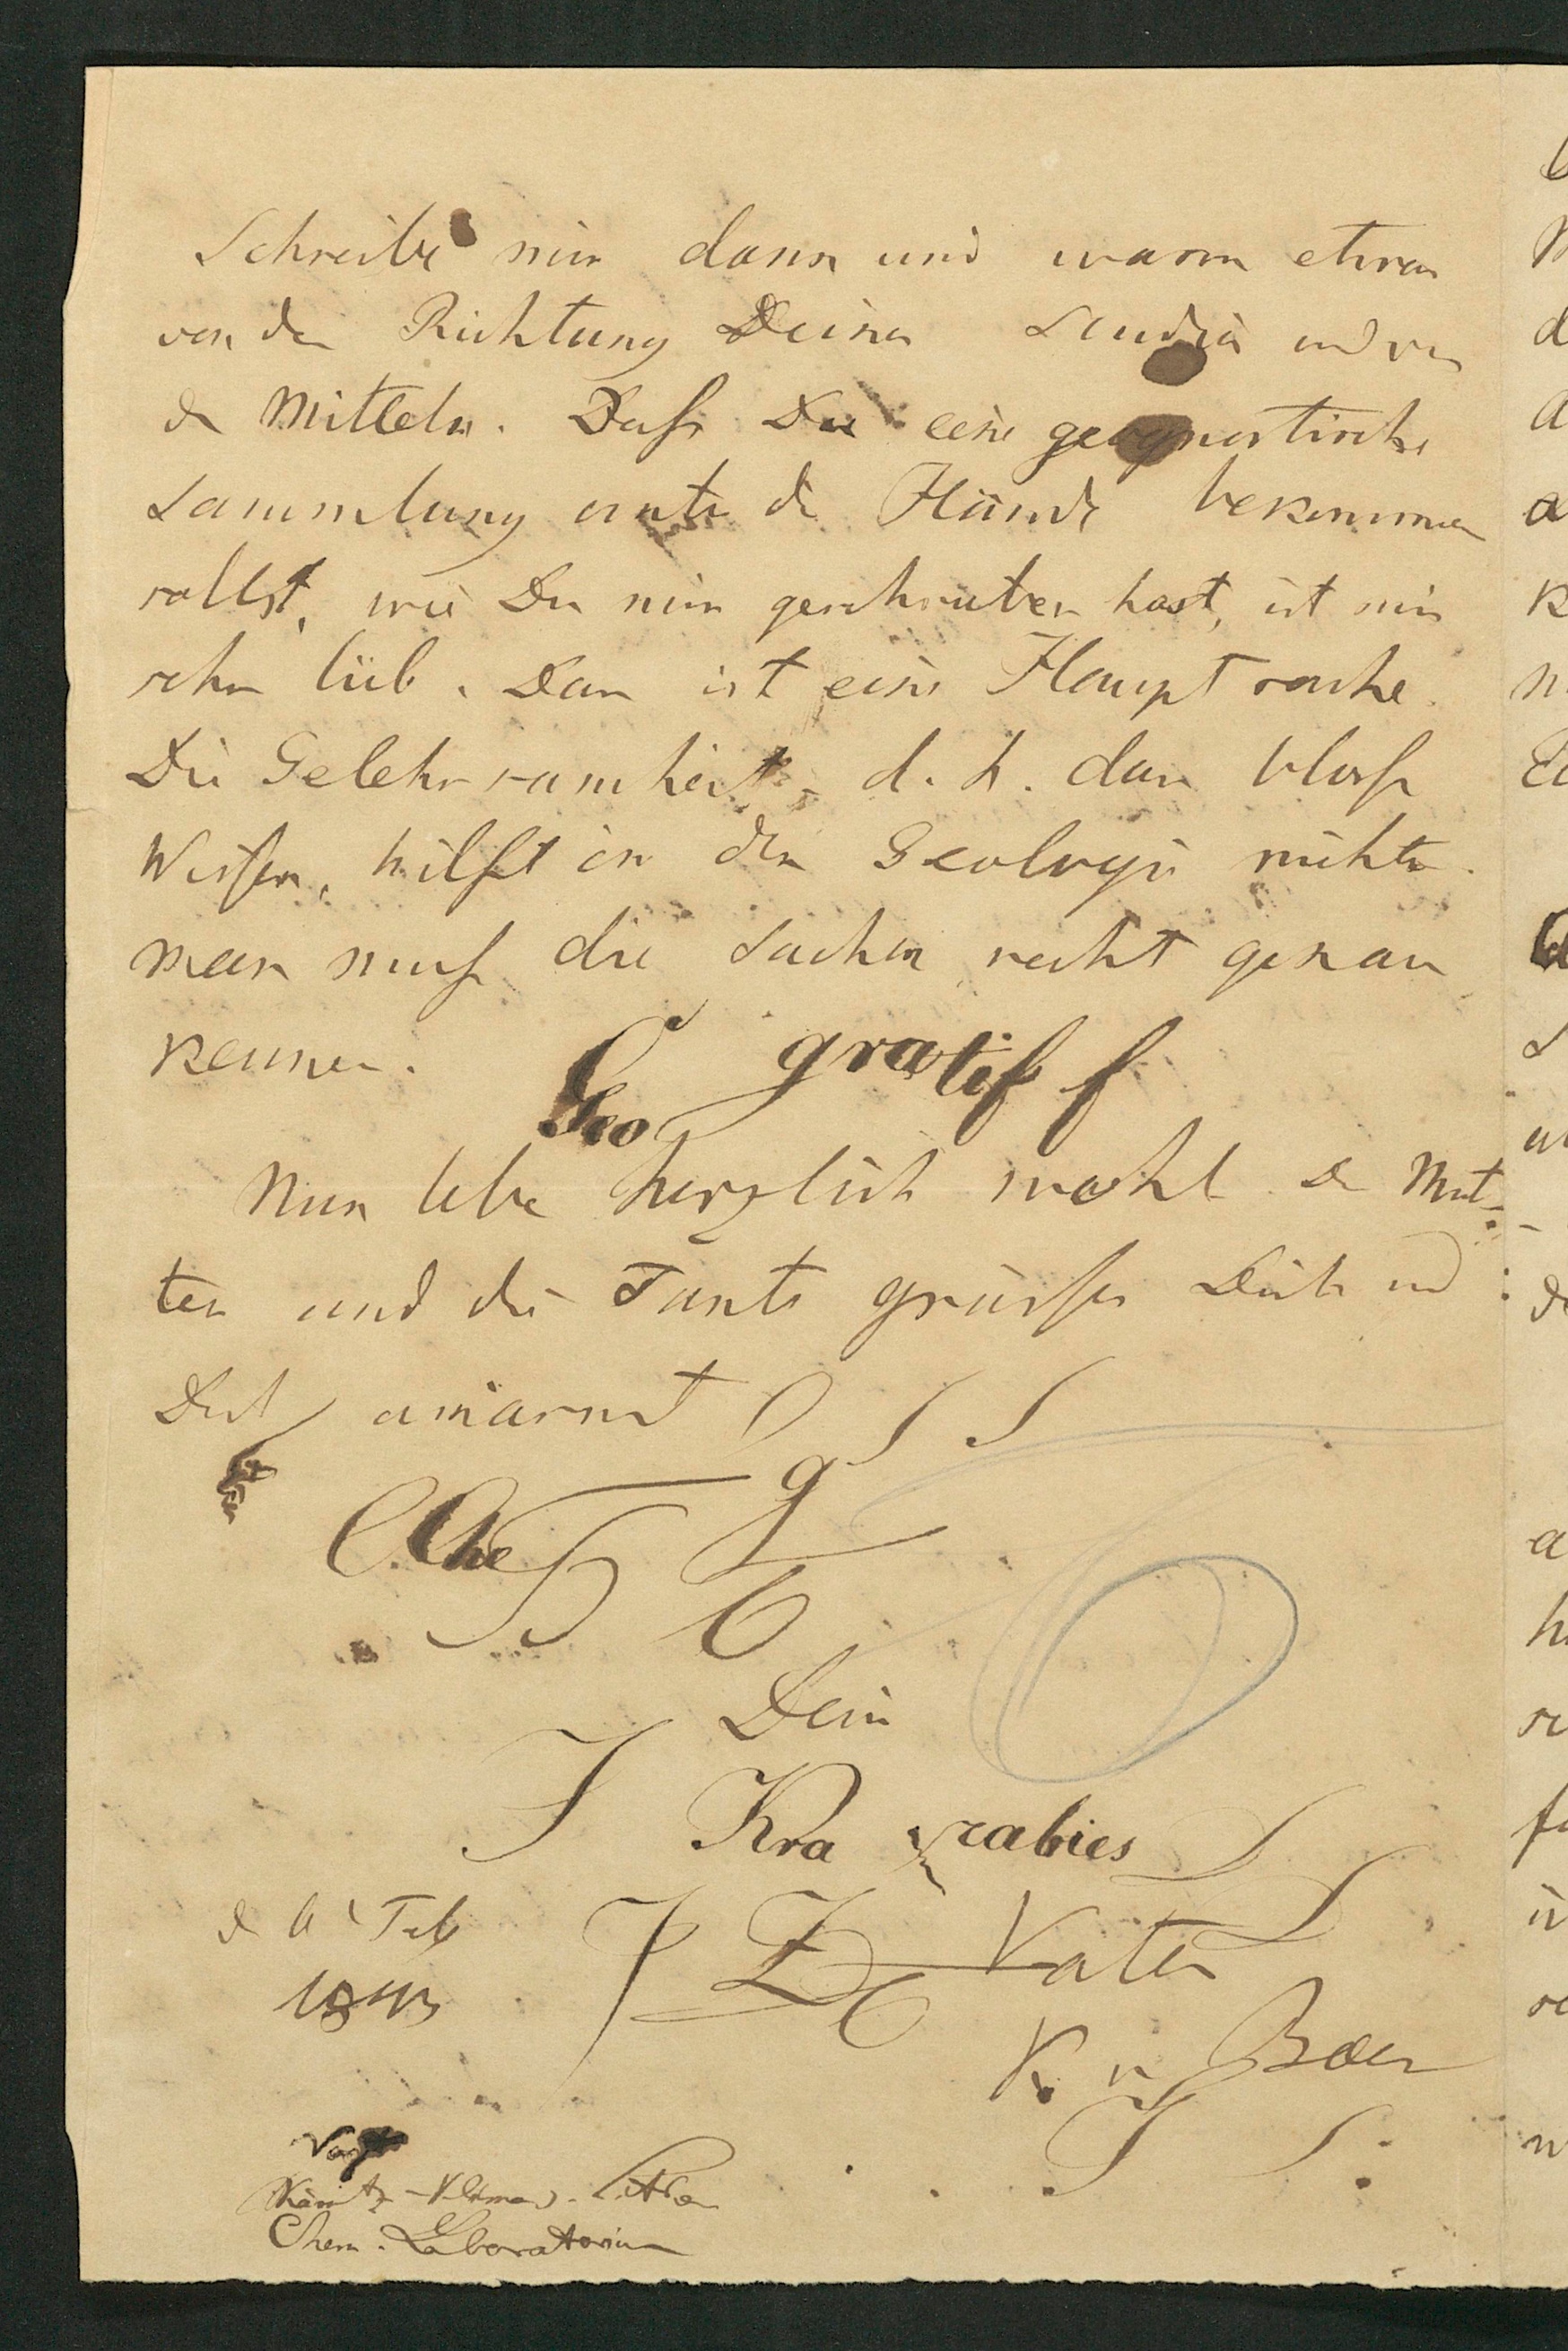 Schreibe mir dann und wann etwas
von der Richtung Deiner Studien und von
den Mitteln. Daß Du eine geognostische
Sammlung unter die Hände bekommen
sollst, wie Du mir geschrieben hast, ist mir
sehr lieb. Das ist eine Hauptsache.
Die Gelehrsamkeit, d. h. das bloße
Wissen, hilft in der Geologie nichts.
man muß die Sachen recht genau
kennen.
Geo gratif f
Nun lebe herzlich wohl. Die Mut-
ter und die Tante grüßen Dich und
Dich umarmt
g
Che
Dein
Kra rabies
Feb
1843
Vater
K v Baer
Chem. Laboratorium